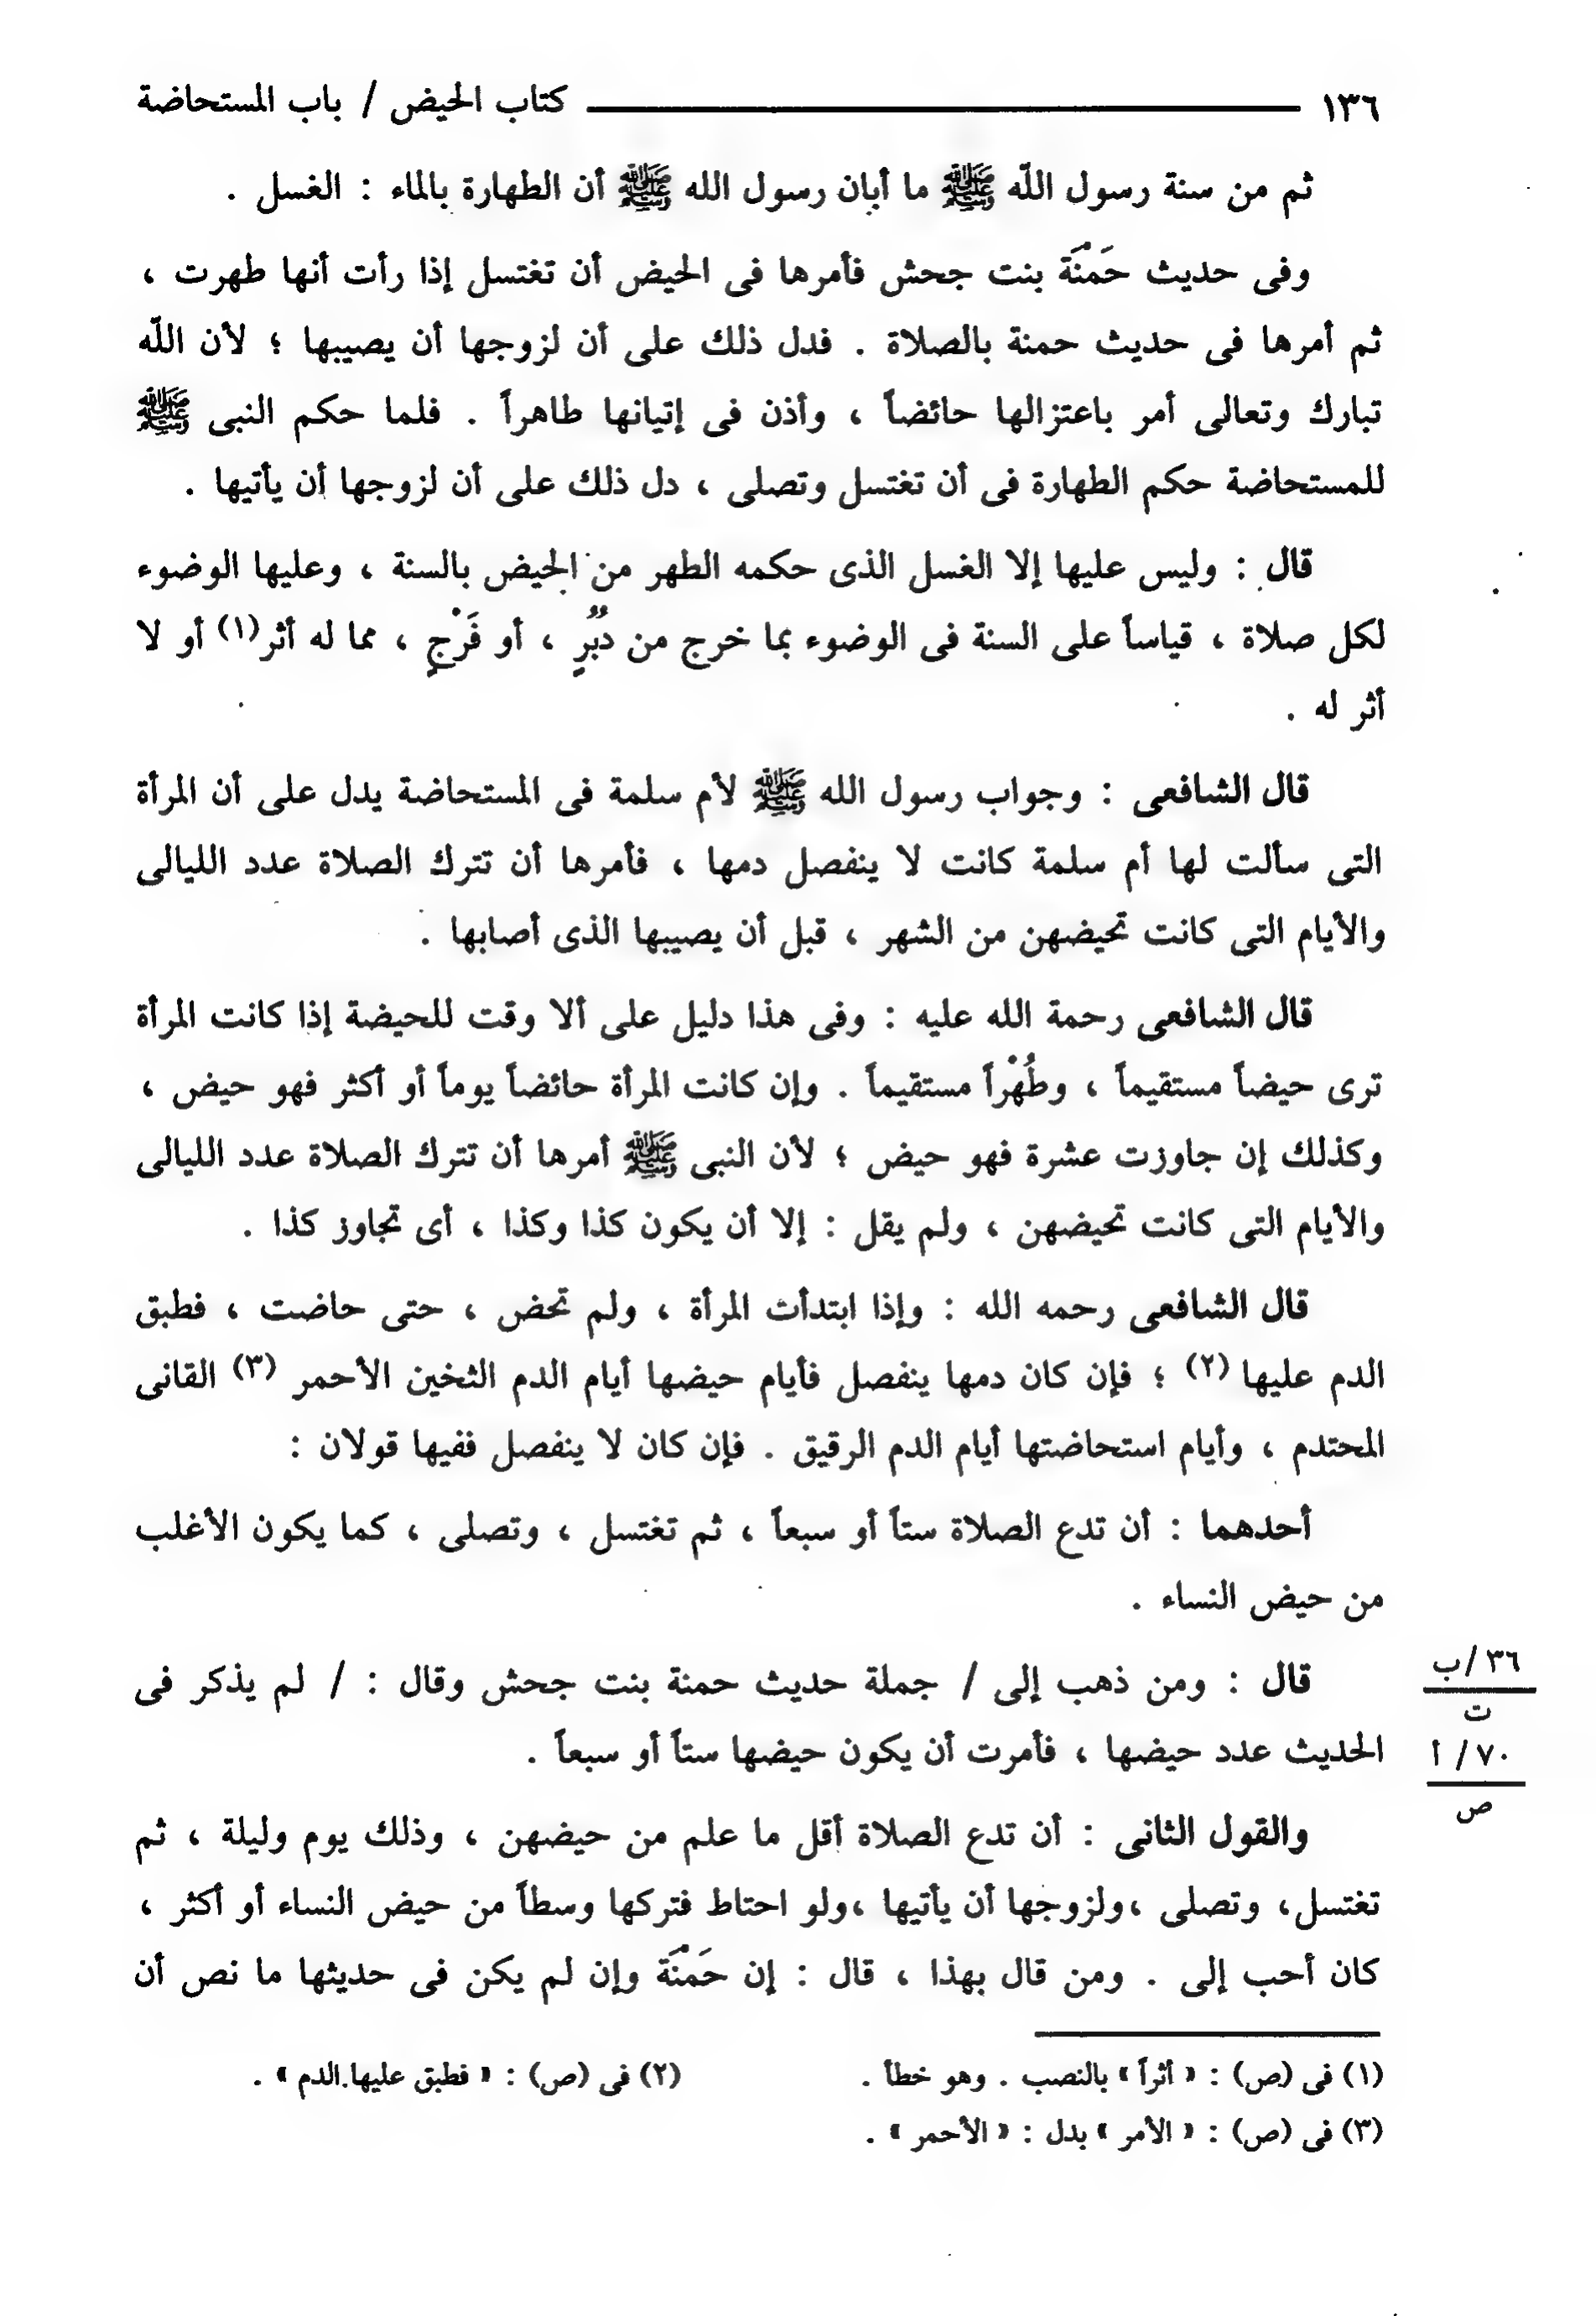 ١٣٦ كتاب الحيض / باب المستحاضة
ثم من سنة رسول اللّه ﷺ ما أبان رسول الله ﷺ أن الطهارة بالماء : الغسل .
وفى حديث حَمْنَة بنت جحش فأمرها فى الحيض أن تغتسل إذا رأت أنها طهرت ،
ثم أمرها فى حديث حمنة بالصلاة . فدل ذلك على أن لزوجها أن يصيبها ؛ لأن اللّه
تبارك وتعالى أمر باعتزالها حائضاً ، وأذن فى إتيانها طاهراً . فلما حكم النبى ﷺ
للمستحاضة حكم الطهارة فى أن تغتسل وتصلى ، دل ذلك على أن لزوجها أن يأتيها .
قال : وليس عليها إلا الغسل الذى حكمه الطهر من الحيض بالسنة ، وعليها الوضوء
لكل صلاة ، قياساً على السنة فى الوضوء بما خرج من دُبُرٍ ، أو فَرْجٍ ، مما له أثر(١) أو لا
أثر له .
قال الشافعى : وجواب رسول الله ﷺ لأم سلمة فى المستحاضة يدل على أن المرأة
التى سألت لها أم سلمة كانت لا ينفصل دمها ، فأمرها أن تترك الصلاة عدد الليالى
والأيام التى كانت تحيضهن من الشهر ، قبل أن يصيبها الذى أصابها .
قال الشافعى رحمة الله عليه : وفى هذا دليل على ألا وقت للحيضة إذا كانت المرأة
ترى حيضاً مستقيماً ، وطُهْراً مستقيماً . وإن كانت المرأة حائضاً يوماً أو أكثر فهو حيض ،
وكذلك إن جاوزت عشرة فهو حيض ؛ لأن النبى ﷺ أمرها أن تترك الصلاة عدد الليالى
والأيام التى كانت تحيضهن ، ولم يقل : إلا أن يكون كذا وكذا ، أى تجاوز كذا .
قال الشافعى رحمه الله : وإذا ابتدأت المرأة ، ولم تحض ، حتى حاضت ، فطبق
الدم عليها (٢) ؛ فإن كان دمها ينفصل فأيام حيضها أيام الدم الثخين الأحمر (٣) القانى
المحتدم ، وأيام استحاضتها أيام الدم الرقيق . فإن كان لا ينفصل ففيها قولان :
أحدهما : أن تدع الصلاة ستاً أو سبعاً ، ثم تغتسل ، وتصلى ، كما يكون الأغلب
من حيض النساء .
٣٦/ب
ت
قال : ومن ذهب إلى / جملة حديث حمنة بنت جحش وقال : / لم يذكر فى
الحديث عدد حيضها ، فأمرت أن يكون حيضها ستاً أو سبعاً .
٧٠/ أ
ص
والقول الثانى : أن تدع الصلاة أقل ما علم من حيضهن ، وذلك يوم وليلة ، ثم
تغتسل، وتصلى ،ولزوجها أن يأتيها ،ولو احتاط فتركها وسطاً من حيض النساء أو أكثر ،
كان أحب إلى . ومن قال بهذا ، قال : إن حَمْنَة وإن لم يكن فى حديثها ما نص أن
(١) فى (ص) : « أثراً » بالنصب . وهو خطأ . (٢) فى (ص) : « فطبق عليها الدم » .
(٣) فى (ص) : « الأمر » بدل : « الأحمر » .